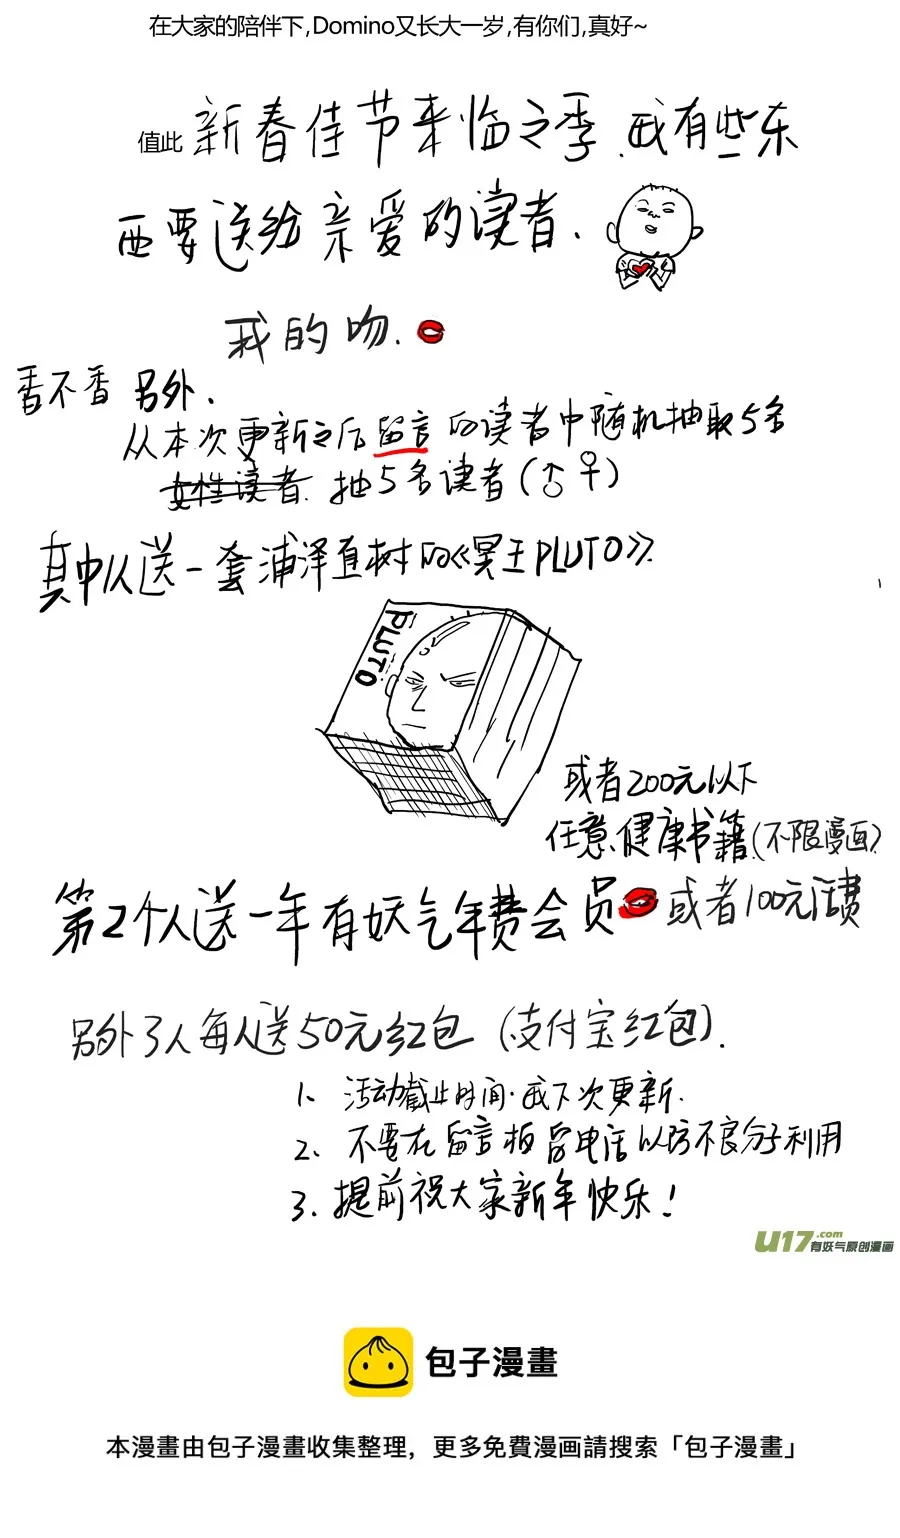 在大家的陪伴下,Domino又长大一岁,有你们,真好~
值此新春佳节来临之季.我有些东
西要送给亲爱的读者.
我的吻.
香不香 另外.
从本次更新之后留言的读者中随机抽取5名
女性读者.抽5名读者(♂♀)
其中1人送一套浦泽直树的《冥王PLUTO》.
PLUTO
或者200元以下
任意健康书籍.(不限漫画)
第2个人送一年有妖气年费会员 或者100元话费
另外3人每人送50元红包(支付宝红包).
1、活动截止时间.我下次更新.
2、不要在留言板留电话以防不良分子利用
3.提前祝大家新年快乐!
U17.com
有妖气原创漫画
包子漫畫
本漫畫由包子漫畫收集整理，更多免費漫画請搜索「包子漫畫」